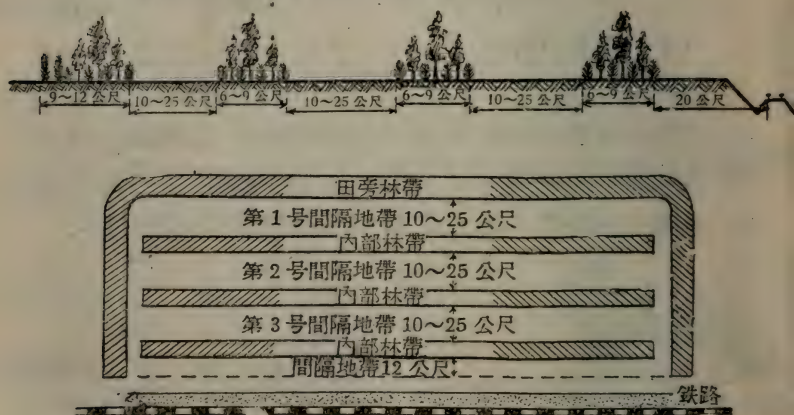 9~12 公尺 10~25 公尺 6~9 公尺 10~25 公尺 6~9 公尺 10~25 公尺 6~9 公尺 20 公尺
田旁林帶
第 1 号間隔地帶 10~25 公尺
內部林帶
第 2 号間隔地帶 10~25 公尺
內部林帶
第 3 号間隔地帶 10~25 公尺
內部林帶
間隔地帶12 公尺
鉄路